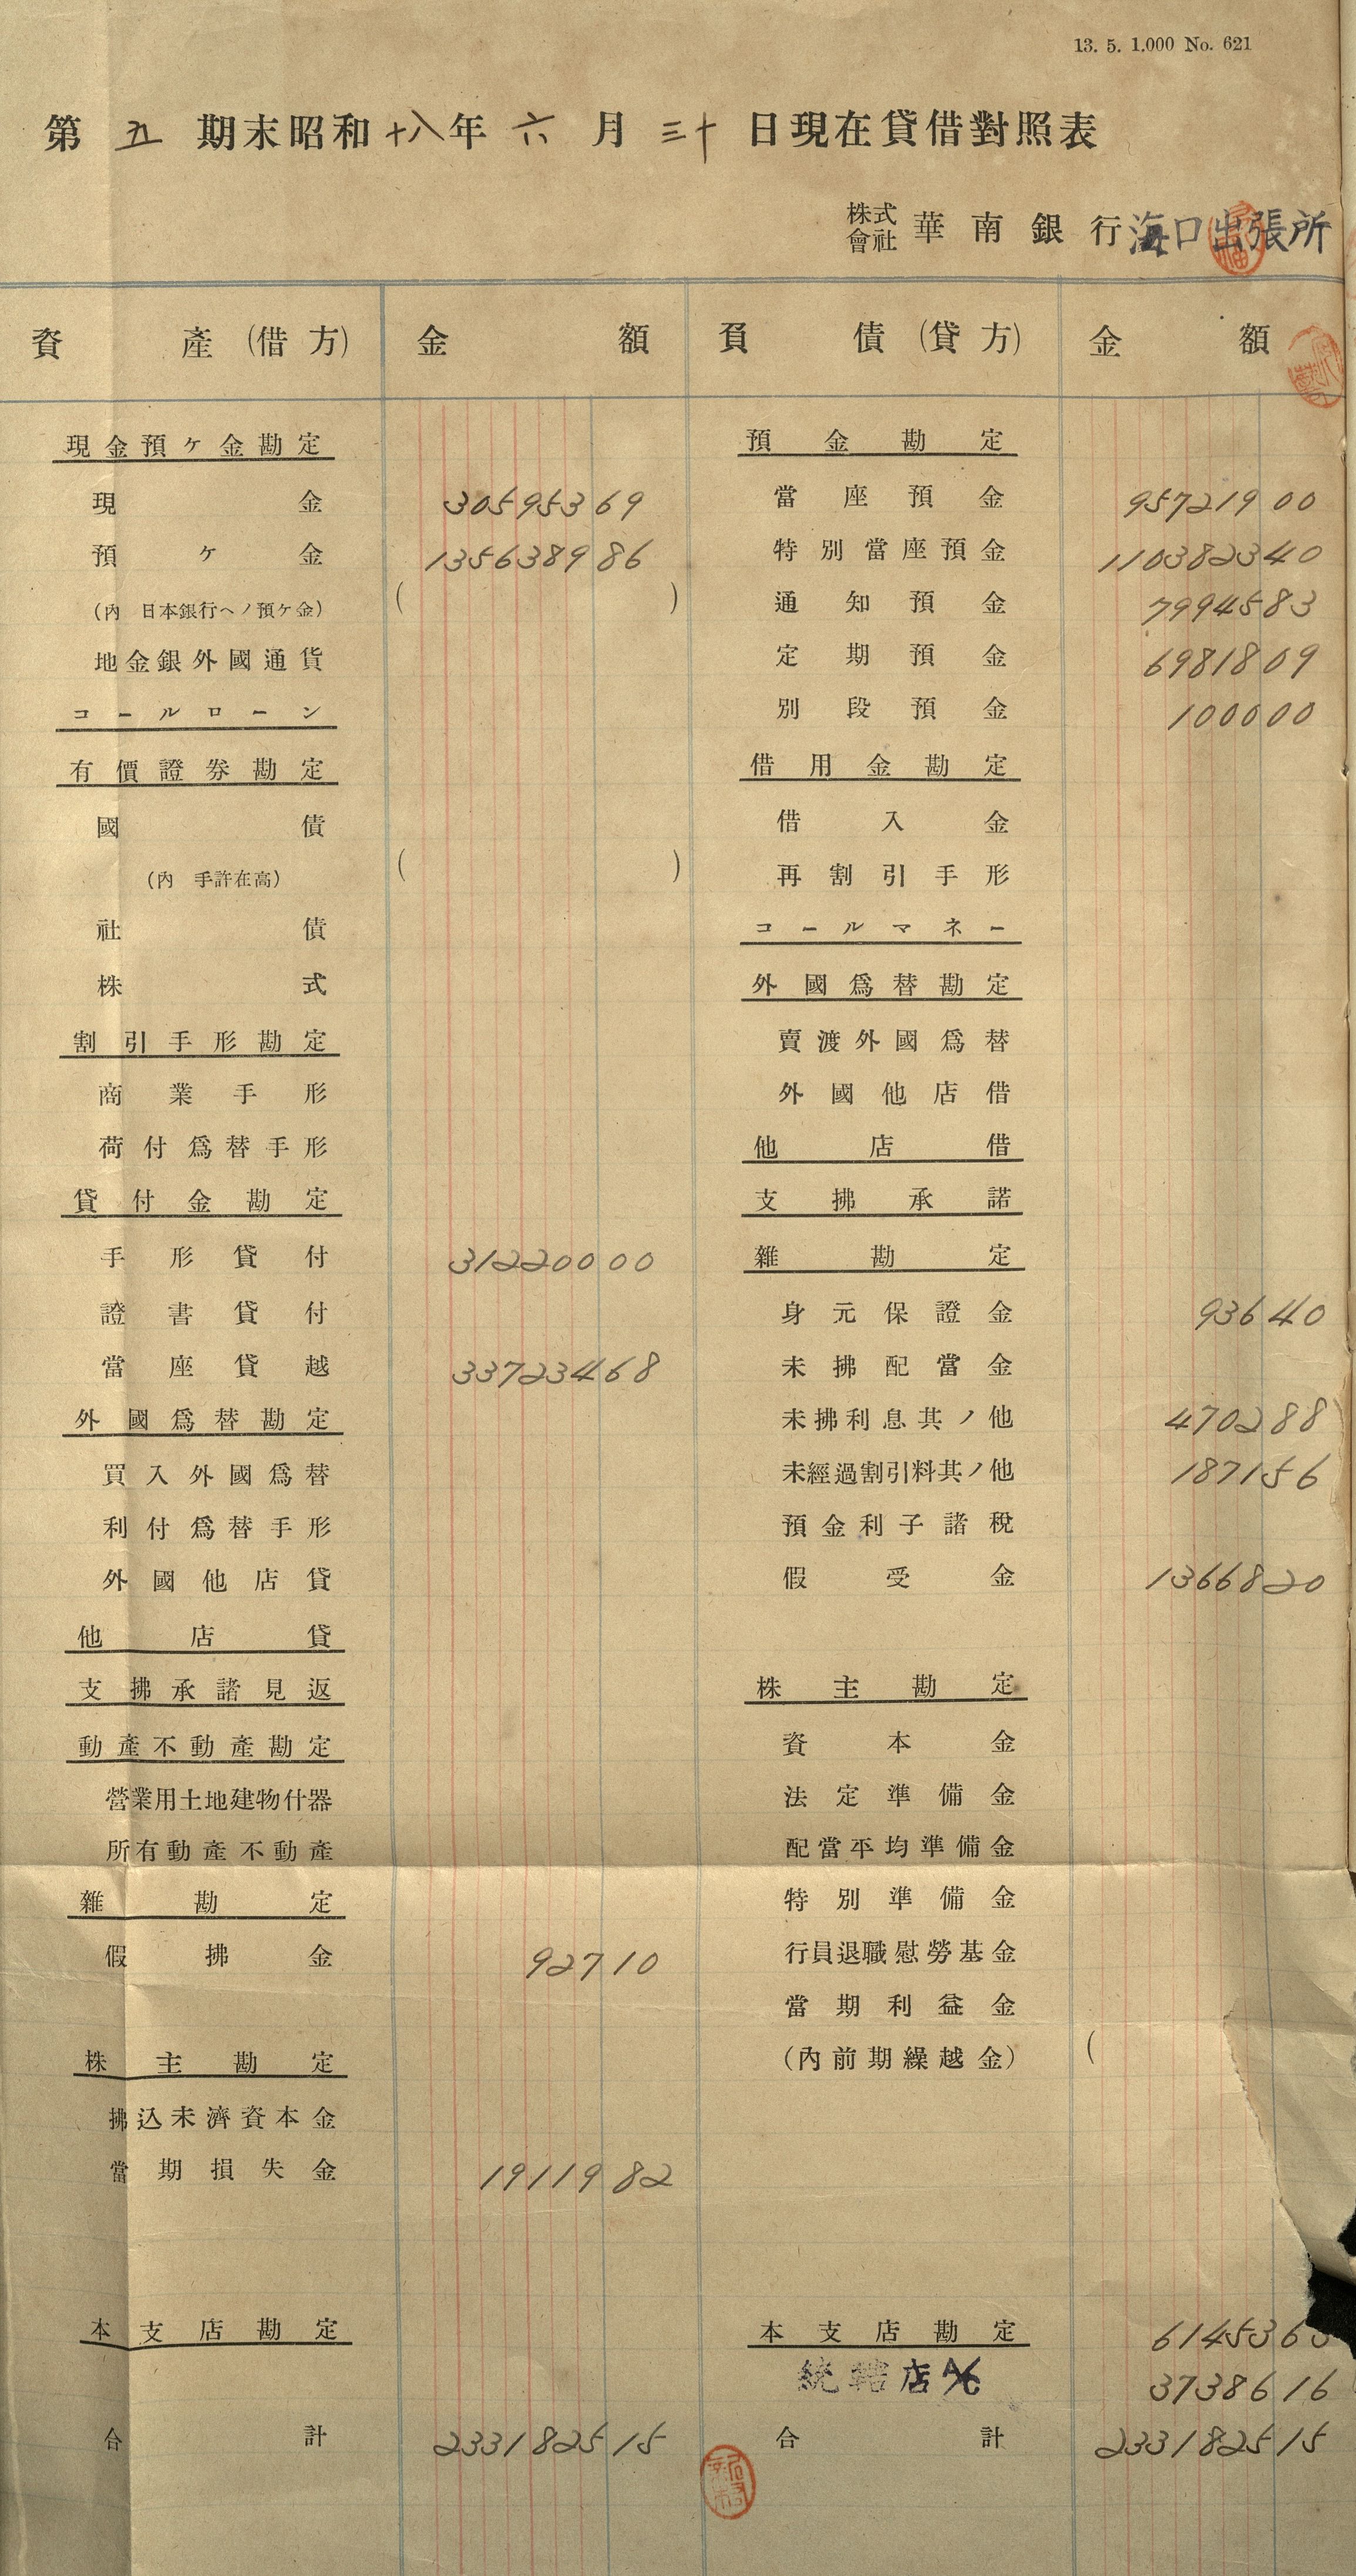 13. 5. 1.000 No. 621
第 五 期末昭和十八年 六 月 三十 日現在貸借對照表
株式會社 華南銀行海口出張所
資產(借方) 金額 負債(貸方) 金額
現金預ケ金勘定 預金勘定
現金 305953 69 當座預金 957219 00
預ケ金 1356389 86 特別當座預金 1103823 40
(內 日本銀行ヘノ預ケ金) ( ) 通知預金 79945 83
地金銀外國通貨 定期預金 69818 09
コールローン 別段預金 1000 00
有價證券勘定 借用金勘定
國債 借入金
(內 手許在高) ( ) 再割引手形
社債 コールマネー
株式 外國爲替勘定
割引手形勘定 賣渡外國爲替
商業手形 外國他店借
荷付爲替手形 他店借
貸付金勘定 支拂承諾
手形貸付 312200 00 雜勘定
證書貸付 身元保證金 936 40
當座貸越 337234 68 未拂配當金
外國爲替勘定 未拂利息其ノ他 4702 88
買入外國爲替 未經過割引料其ノ他 1871 56
利付爲替手形 預金利子諸稅
外國他店貸 假受金 13668 20
他店貸
支拂承諾見返 株主勘定
動產不動產勘定 資本金
營業用土地建物什器 法定準備金
所有動產不動產 配當平均準備金
雜勘定 特別準備金
假拂金 927 10 行員退職慰勞基金
當期利益金
株主勘定 (內前期繰越金) (
拂込未濟資本金
當期損失金 19119 82
本支店勘定 本支店勘定 61453 63
統轄店 A/C 37386 16
合計 2331825 15 合計 2331825 15